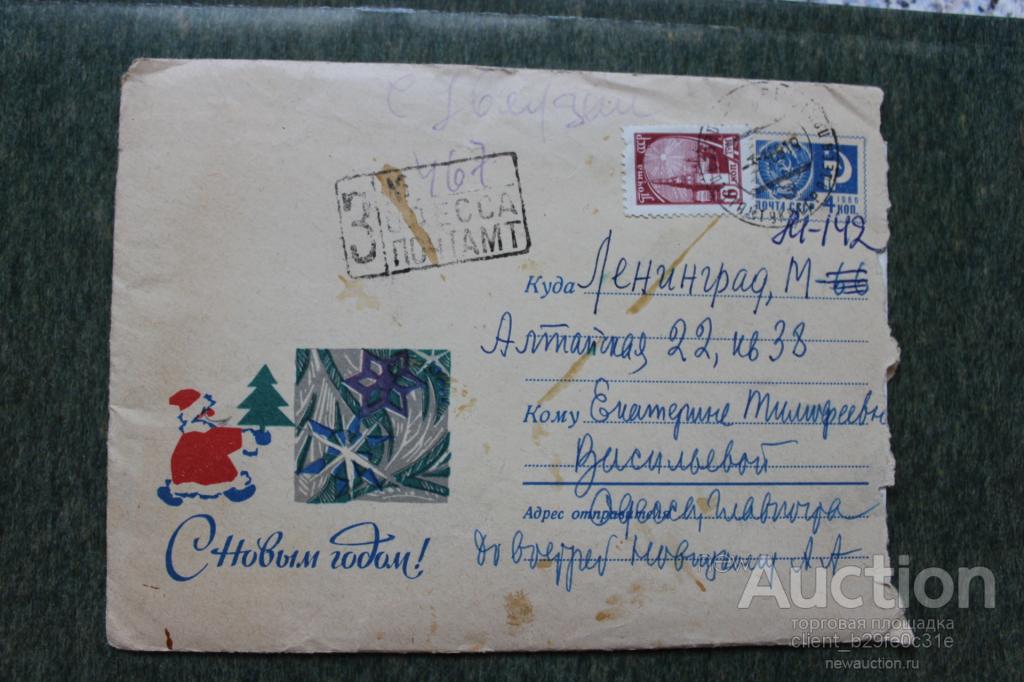 № 467
З ОДЕССА
ПОЧТАМТ
Почта СССР
6 КОП
ПОЧТА СССР
1966
4 КОП
М-142
Куда Ленинград, М-66
Алтайская 22, кв 38
Кому Екатерине Тимофеевн
Васильевой
Адрес отправителя Одесса, Главпочта
До востреб А А
С Новым годом!
Auction
торговая площадка
client_b29fe0c31e
newauction.ru